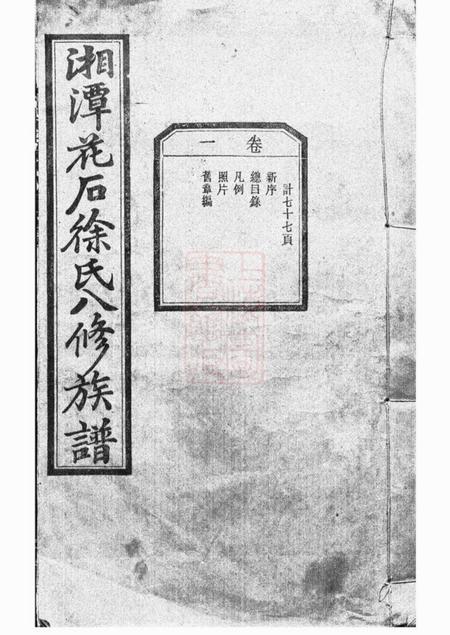 湘潭花石徐氏八修族譜
卷一
計七十七頁
新序
總目錄
凡例
照片
舊章編